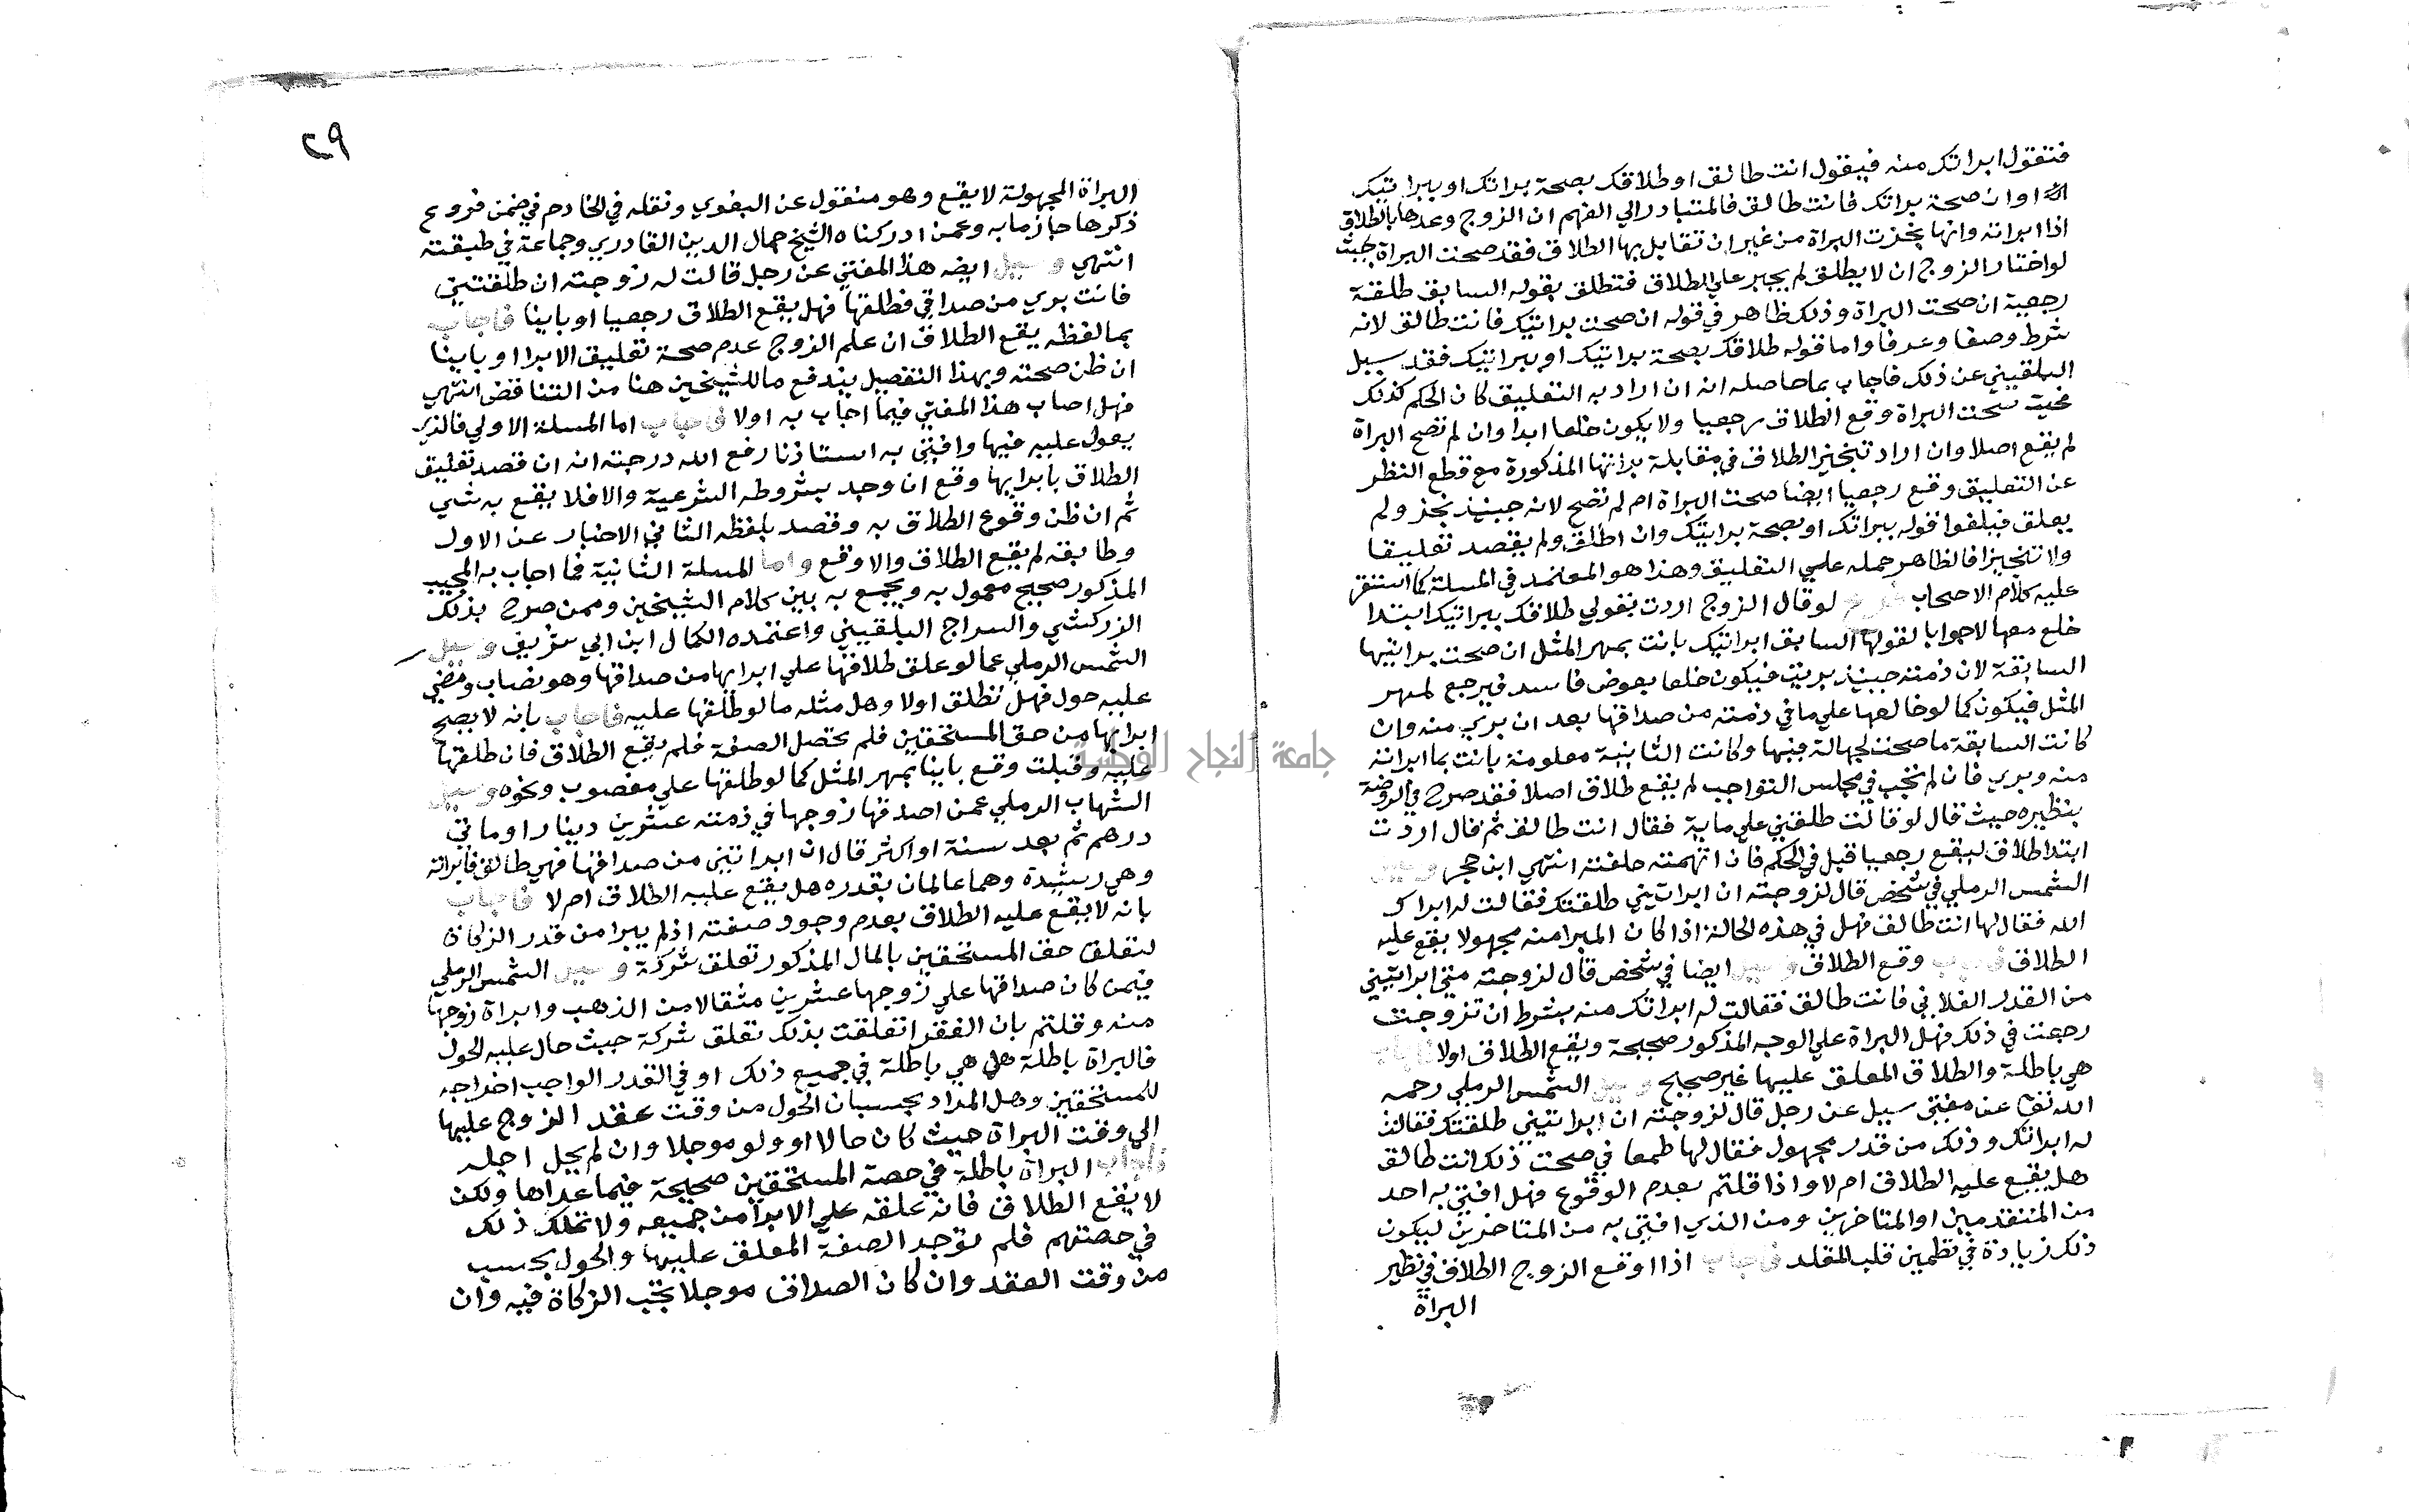 فتقول ابراتك منه فيقول انت طالق او طلاقك بصحة براتك او ببراتيك
او ان صحة براتك فانت طالق فالمتبادر الي الفهم ان الزوج وعدها بالطلاق
اذا ابراته وانها نجزت البراة من غير ان تقابل بها الطلاق فقد صحت البراة بحيث
لو اختار الزوج ان لا يطلق لم يجبر علي الطلاق فتطلق بقوله السابق طلقة
رجعية ان صحت البراة وذلك ظاهر في قوله ان صحت براتيك فانت طالق لانه
شرط وصفا وعرفا واما قوله طلاقك بصحة براتيك او ببراتيك فقد سيل
البلقيني عن ذلك فاجاب بما حاصله انه ان اراد به التعليق كان الحكم كذلك
فحيث صحت البراة وقع الطلاق رجعيا ولا يكون خلعا ابدا وان لم تصح البراة
لم يقع اصلا وان اراد تنجيز الطلاق في مقابلة براتها المذكورة مع قطع النظر
عن التعليق وقع رجعيا ايضا صحت البراة ام لم تصح لانه حينيذ نجز ولم
يعلق فيلغوا قوله ببراتك او بصحة براتيك وان اطلق ولم يقصد تعليقا
ولا تنجيزا فالظاهر حمله علي التعليق وهذا هو المعتمد في المسلة كما استقر
عليه كلام الاصحاب فرع لو قال الزوج اردت بقولي طلاقك ببراتيك ابتدا
خلع معها لا جوابا لقولها السابق ابراتيك بانت بمهر المثل ان صحت براتيها
السابقة لان ذمته حينيذ بريت فيكون خلعا بعوض فاسد فيرجع لمهر
المثل فيكون كما لو خالعها علي ما في ذمته من صداقها بعد ان بري منه وان
كانت السابقة ما صحت لجهالة فيها وكانت الثانية معلومة بانت بما ابراته
منه وبري فان لم تجب في مجلس التواجب لم يقع طلاق اصلا فقد صرح في الروضة
بنظيره حيث قال لو قالت طلقني علي ماية فقال انت طالق ثم قال اردت
ابتدا طلاق ليقع رجعيا قبل في الحكم فان اتهمته حلفته انتهي ابن حجر وسيل
الشمس الرملي في شخص قال لزوجته ان ابراتيني طلقتك فقالت له ابراك
الله فقال لها انت طالق فهل في هذه الحالة اذا كان المبرا منه مجهولا يقع عليه
الطلاق فاجاب وقع الطلاق وسيل ايضا في شخص قال لزوجته متي ابراتيني
من القدر الفلاني فانت طالق فقالت له ابراتك منه بشرط ان تزوجت
رجعت في ذلك فهل البراة علي الوجه المذكور صحيحة ويقع الطلاق اولا فاجاب
هي باطلة والطلاق المعلق عليها غير صحيح وسيل الشمس الرملي رحمه
الله تعا عن مفتي سيل عن رجل قال لزوجته ان ابراتيني طلقتك فقالت
له ابراتك وذلك من قدر مجهول فقال لها طمعا في صحت ذلك انت طالق
هل يقع عليه الطلاق ام لا واذا قلتم بعدم الوقوع فهل افتي به احد
من المتقدمين او المتاخرين ومن الذي افتي به من المتاخرين ليكون
ذلك زيادة في تطمين قلب المقلد فاجاب اذا اوقع الزوج الطلاق في نظير
البراة
٢٩
البراة المجهولة لا يقع وهو منقول عن البغوي ونقله في الخادم في ضمن فروع
ذكرها جازما به وعمن ادركناه الشيخ جمال الدين القادري وجماعة في طبقته
انتهي وسيل ايضه هذا المفتي عن رجل قالت له زوجته ان طلقتني
فانت بري من صداقي فطلقها فهل يقع الطلاق رجعيا او باينا فاجاب
بما لفظه يقع الطلاق ان علم الزوج عدم صحة تعليق الابرا او باينا
ان ظن صحته وبهذا التفصيل يندفع ما للشيخين هنا من التناقض انتهي
فهل اصاب هذا المفتي فيما اجاب به اولا فاجاب اما المسلة الاولي فالذي
يعول عليه فيها وافتي به استاذنا رفع الله درجته انه ان قصد تعليق
الطلاق بابرايها وقع ان وجد بشروطه الشرعية والا فلا يقع به شي
ثم ان ظن وقوع الطلاق به وقصد بلفظه الثاني الاخبار عن الاول
وطابقه لم يقع الطلاق والا وقع واما المسلة الثانية فما اجاب به المجيب
المذكور صحيح معمول به ويجمع به بين كلام الشيخين وممن صرح بذلك
الزركشي والسراج البلقيني واعتمده الكمال ابن ابي شريف وسيل
الشمس الرملي عما لو علق طلاقها علي ابرايها من صداقها وهو نصاب ومضي
عليه حول فهل تطلق اولا وهل مثله ما لو طلقها عليه فاجاب بانه لا يصح
ابرايها من حق المستحقين فلم تحصل الصفة فلم يقع الطلاق فان طلقها
عليه وقبلت وقع باينا بمهر المثل كما لو طلقها علي مغصوب ونحوه وسيل
الشهاب الرملي عمن اصدقها زوجها في ذمته عشرين دينارا او ماتي
درهم ثم بعد سنة او اكثر قال ان ابراتني من صداقها فهي طالق فابراته
وهي رشيدة وهما عالمان بقدره هل يقع عليه الطلاق ام لا فاجاب
بانه لا يقع عليه الطلاق بعدم وجود صفته اذ لم يبرا من قدر الزكاة
لتعلق حق المستحقين بالمال المذكور تعلق شركة وسيل الشمس الرملي
فيمن كان صداقها علي زوجها عشرين مثقالا من الذهب وابراة زوجها
منه وقلتم بان الفقرا تعلقت بذلك تعلق شركة حيث حال عليه الحول
فالبراة باطلة هل هي باطلة في جميع ذلك او في القدر الواجب اخراجه
للمستحقين وهل المراد بحسبان الحول من وقت عقد الزوج عليها
الي وقت البراة حيث كان حالا او ولو موجلا وان لم يحل اجله
فاجاب البراة باطلة في حصة المستحقين صحيحة فيما عداها ولكن
لا يقع الطلاق فانه علقه علي الابرا من جميعه ولا تملك ذلك
في حصتهم فلم توجد الصفة المعلق عليها والحول بحسب
من وقت العقد وان كان الصداق موجلا تجب الزكاة فيه وان
جامعة النجاح الوطنية